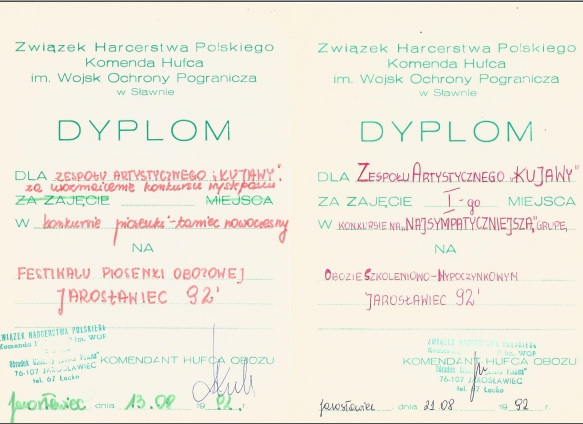 Związek Harcerstwa Polskiego
Komenda Hufca
im. Wojsk Ochrony Pogranicza
w Sławnie
DYPLOM
DLA ZESPOŁU ARTYSTYCZNEGO „KUJAWY”.
za urozmaicenie konkursu występami
ZA ZAJĘCIE MIEJSCA
W konkursie piosenki - taniec nowoczesny
NA
FESTIWALU PIOSENKI OBOZOWEJ
JAROSŁAWIEC 92'
ZWIĄZEK HARCERSTWA POLSKIEGO
Komenda im. WOP
76-107 JAROSŁAWIEC
tel. 67 Łącko
KOMENDANT HUFCA OBOZU
Jarosławiec dnia 13.08 1992 r.
Związek Harcerstwa Polskiego
Komenda Hufca
im. Wojsk Ochrony Pogranicza
w Sławnie
DYPLOM
DLA ZESPOŁU ARTYSTYCZNEGO „KUJAWY”
ZA ZAJĘCIE I-go MIEJSCA
W KONKURSIE NA „NAJSYMPATYCZNIEJSZĄ” GRUPĘ
NA
OBOZIE SZKOLENIOWO-WYPOCZYNKOWYM
JAROSŁAWIEC 92'
ZWIĄZEK HARCERSTWA POLSKIEGO
KOMENDANT HUFCA OBOZU
76-107 JAROSŁAWIEC
tel. 67 Łącko
Jarosławiec dnia 21.08 1992 r.